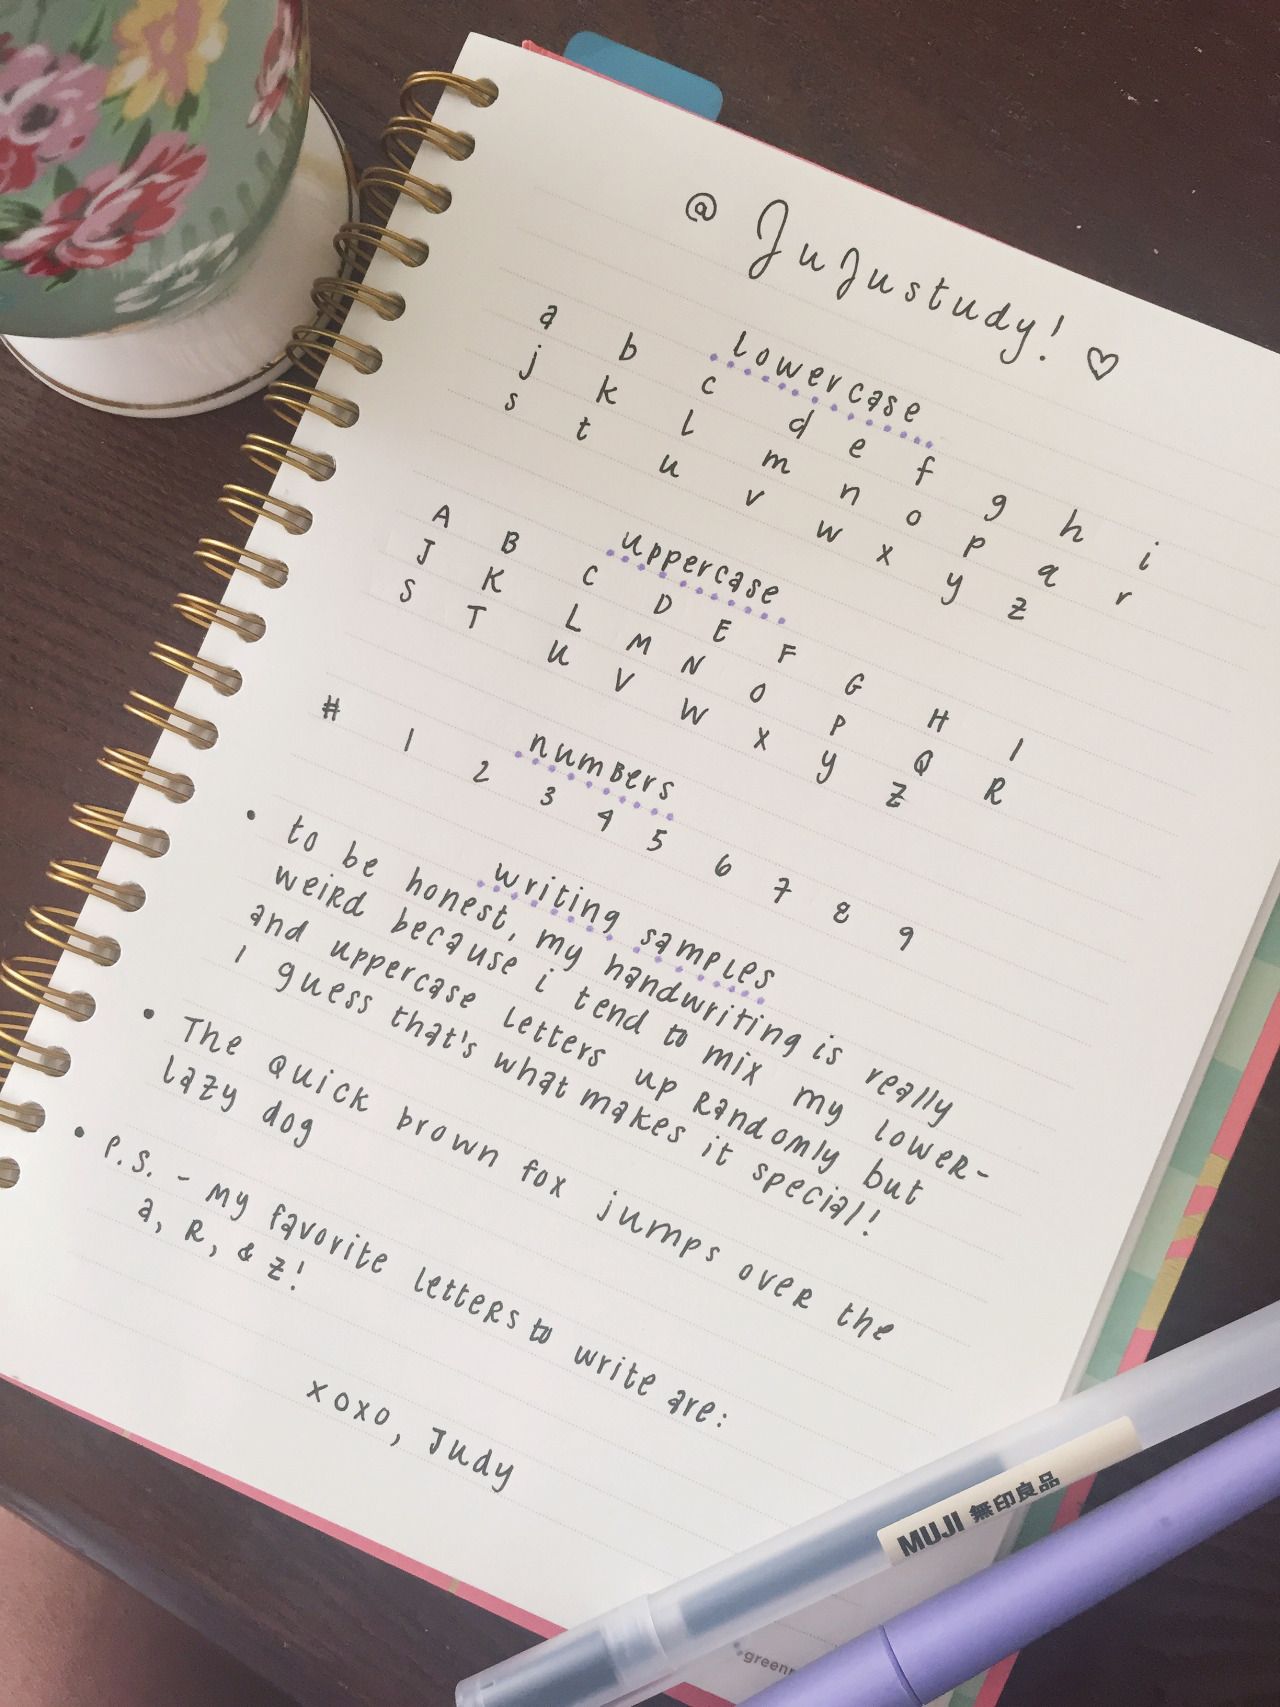 @ JuJustudy! ♡
lowercase
a b c d e f g h i
j k l m n o p q r
s t u v w x y z
uppercase
A B C D E F G H I
J K L M N O P Q R
S T U V W X Y Z
numbers
# 1 2 3 4 5 6 7 8 9
writing samples
• to be honest, my handwriting is really
weird because i tend to mix my lower-
and uppercase letters up randomly but
I guess that's what makes it special!
• The quick brown fox jumps over the
lazy dog
• P.S. - my favorite letters to write are:
a, R, & z!
xoxo, Judy
MUJI 無印良品